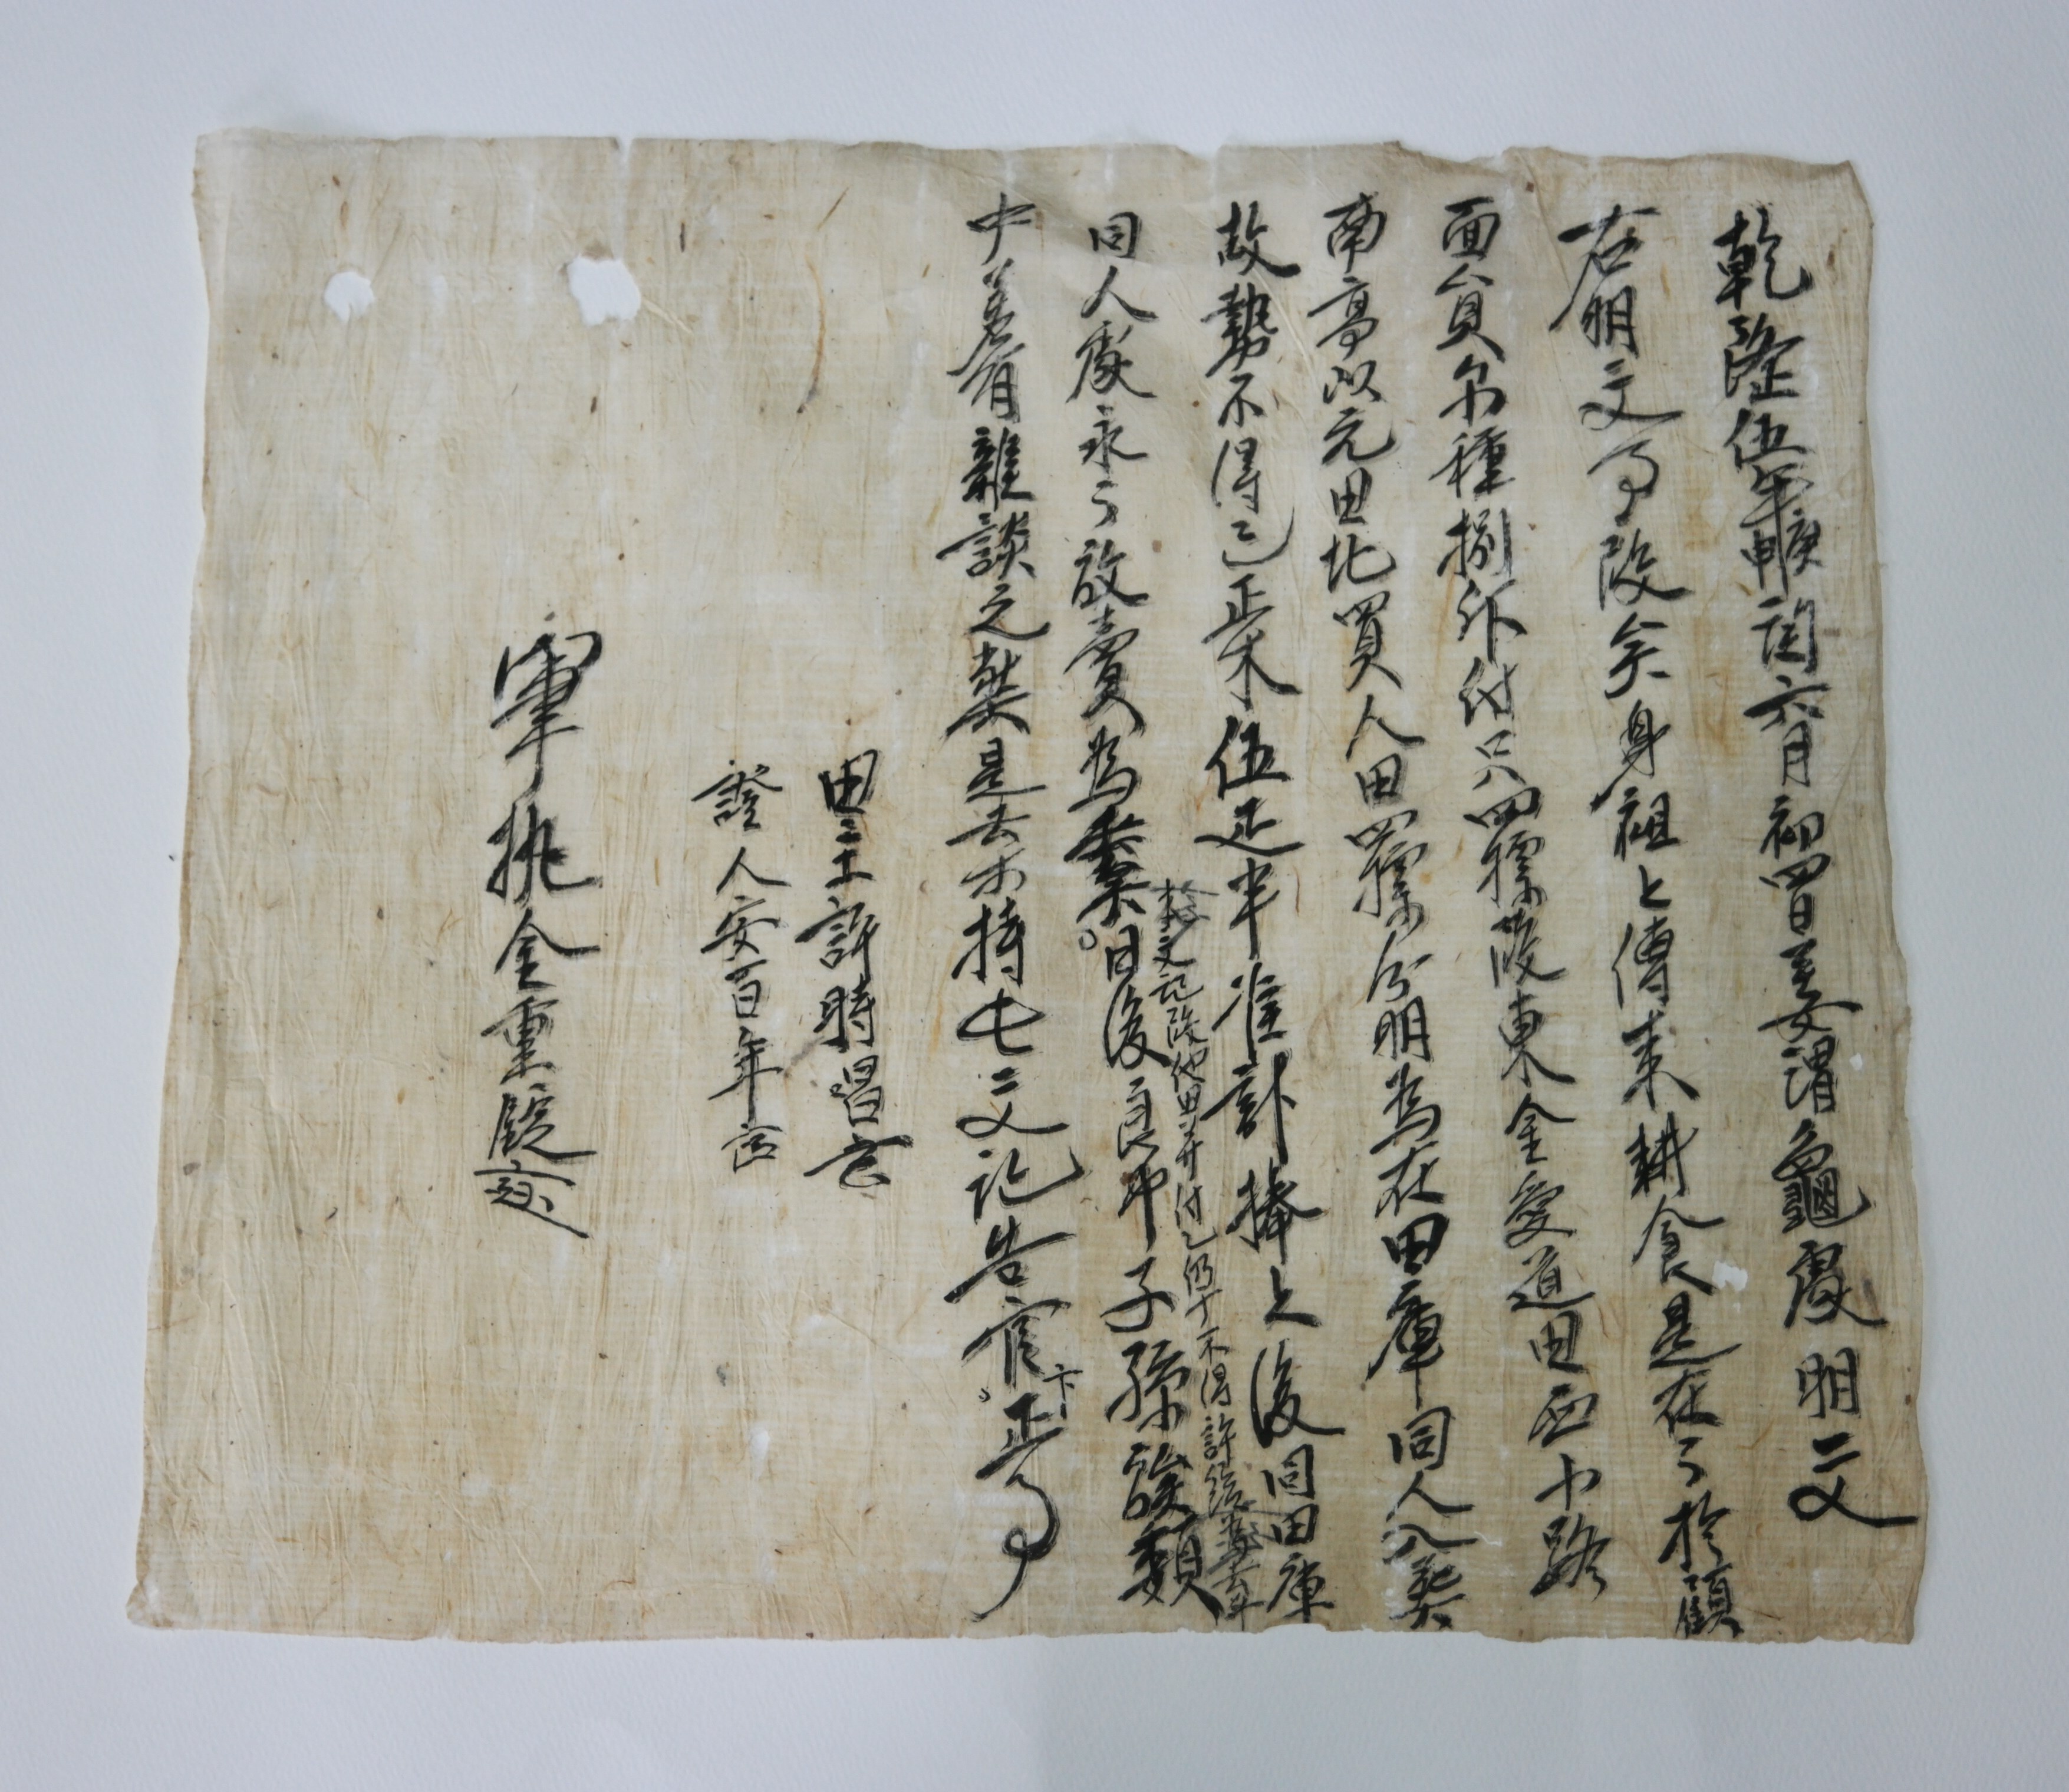 乾隆伍年庚申閏六月初四日姜渭龜處明文
右明文事段矣身祖上傳來耕食是在㢱於顧
面員 種捌斗付只四標段東金愛道田西小路
南亭以元田北買人田四標分明爲在田庫同人 契
故勢不得已正木伍疋半准計捧上後同田庫
本文記段他田幷付乙仍于不得許給
同人處永永放賣爲 日後良中子孫族類
中若有雜談之弊是去等持此文記告官卞正事
田主許時昌
證人安百年
筆執金重